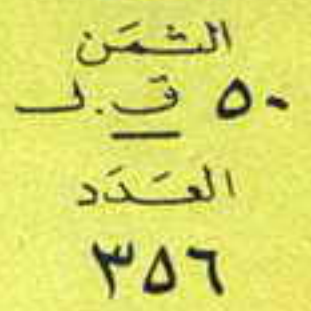 الثمَن
٥٠ ق.ل
العَدَد
٣٥٦